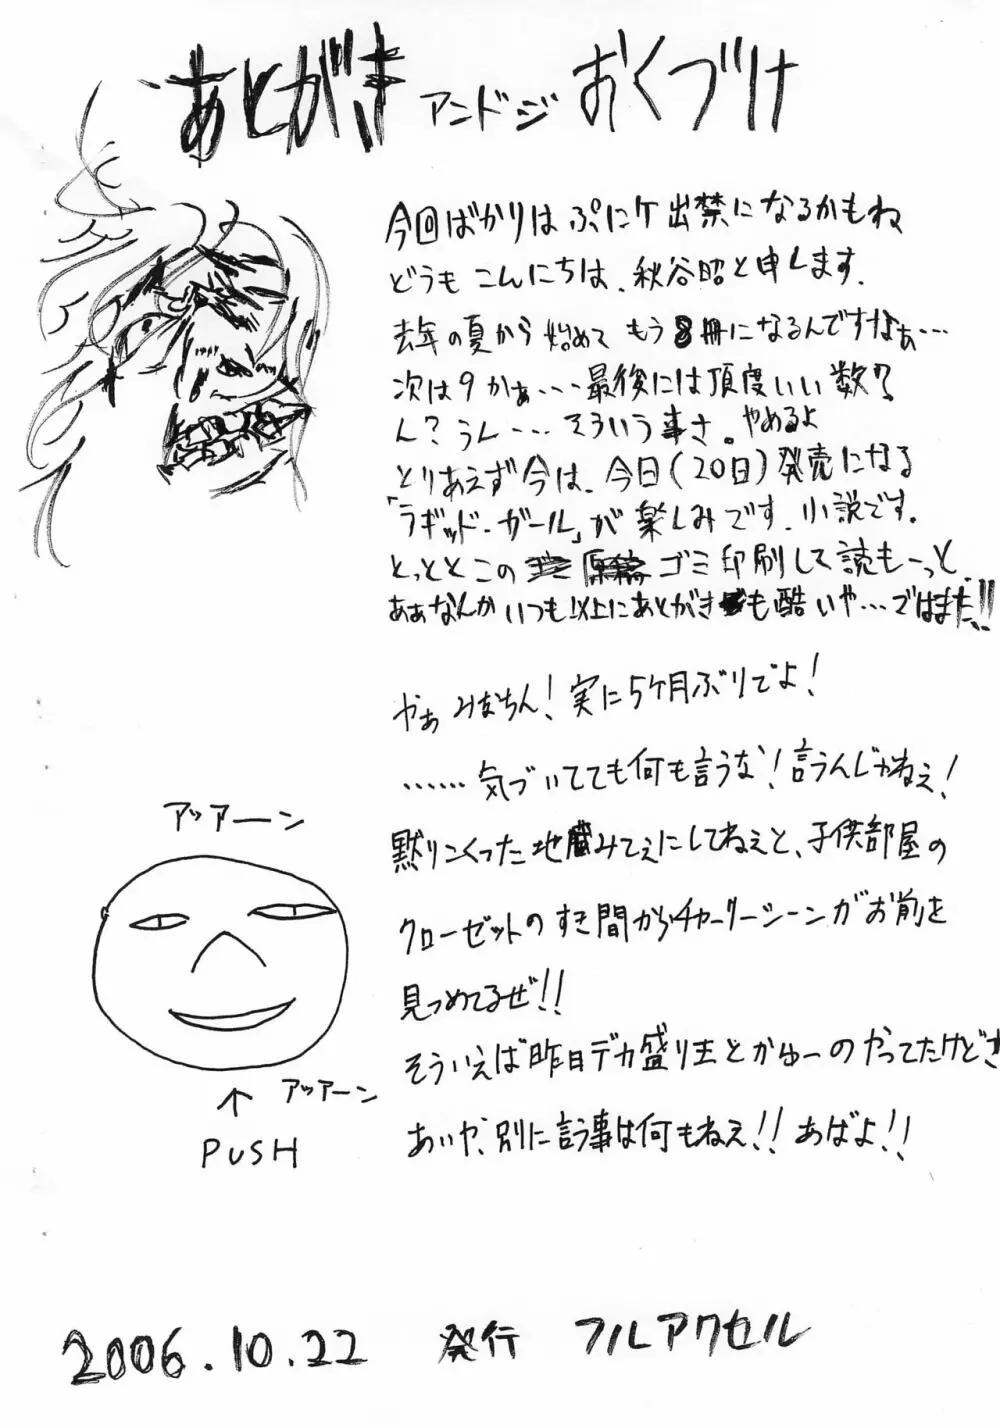 あとがき アンド ジ おくづけ
今回ばかりは ぷにケ出禁になるかもね
どうも こんにちは、秋谷昭と申します。
去年の夏から 始めて もう8冊になるんですなぁ…
次は9かぁ… 最後には頂度いい数?
ん? うん… そういう事さ。やめるよ
とりあえず今は、今日(20日)発売になる
「ラギッド・ガール」が楽しみです、小説です。
とっととこの ゴミ印刷して読もーっと
あぁなんか いつも以上にあとがきも酷いや…ではまた!!
やぁ みなちん! 実に5ケ月ぶりでよ!
……気づいてても何も言うな! 言うんじゃねぇ!
アッアーン
黙りこくった地蔵みてぇにしてねぇと、子供部屋の
クローゼットのすき間からチャーリーシーンがお前を
見つめてるぜ!!
そういえば昨日デカ盛り王とかゆーのやってたけどさ
アッアーン
あいや、別に言う事は何もねぇ!! あばよ!!
PUSH
2006.10.22 発行 フルアクセル